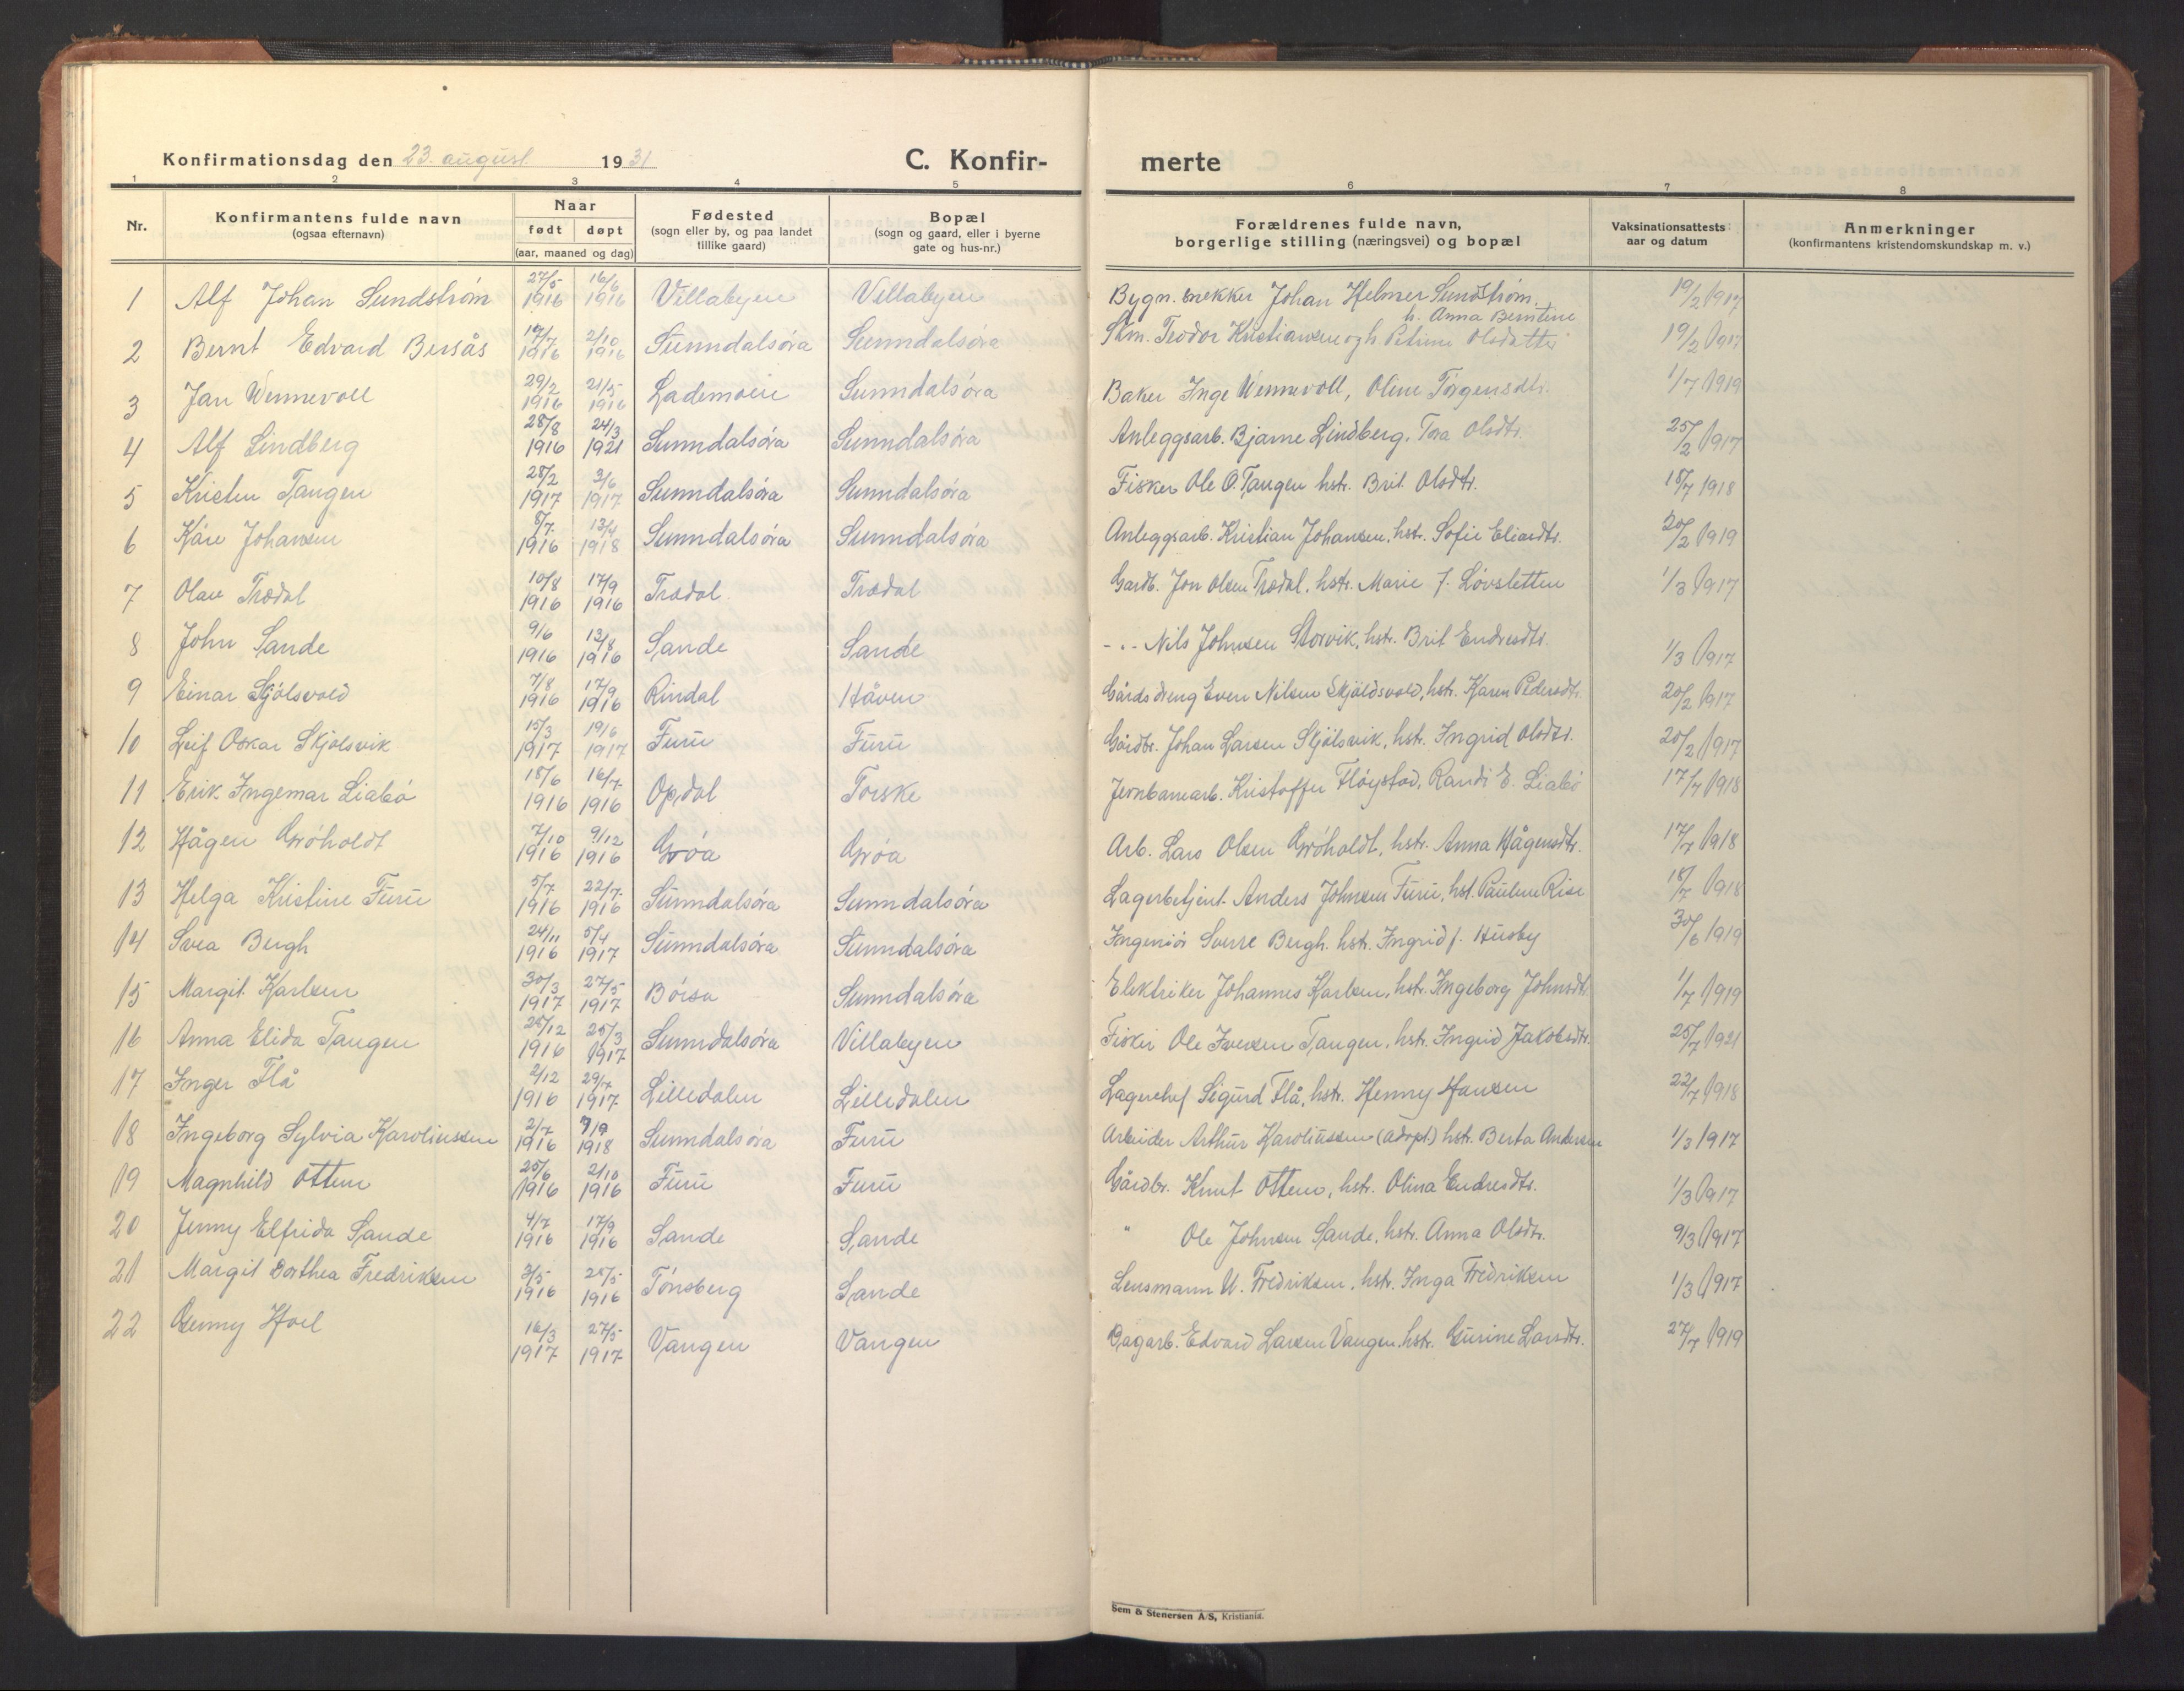 Konfirmationsdag den 23. august 1931 C. Konfir- merte
1 2 3 4 5 6 7 8
Nr. Konfirmantens fulde navn (ogsaa efternavn) Naar født døpt (aar, maaned og dag) Fødested (sogn eller by, og paa landet tillike gaard) Bopæl (sogn og gaard, eller i byerne gate og hus-nr.) Forældrenes fulde navn, borgerlige stilling (næringsvei) og bopæl Vaksinationsattests aar og datum Anmerkninger (konfirmantens kristendomskundskap m. v.)
1 Alf Johan Sundstrøm 27/5 1916 16/6 1916 Villabyen Villabyen Bygn. snekker Johan Helmer Sundstrøm. h. Anna Berntine 19/2 1917
2 Bernt Edvard Bersås 17/7 1916 2/10 1916 Sunndalsøra Sunndalsøra Teodor Kristiansen og h Petrine Olsdatter 19/2 1917
3 Jan Wennevoll 29/2 1916 21/5 1916 Lademoen Sunndalsøra Baker Inge Wennevoll, Oline Torgensdtr. 1/7 1919
4 Alf Lindberg 28/8 1916 24/3 1921 Sunndalsøra Sunndalsøra Anleggsarb. Bjarne Lindberg. Tora Olsdtr. 25/2 1917
5 Kristen Tangen 28/2 1917 3/6 1917 Sunndalsøra Sunndalsøra Fisker Ole O. Tangen hstr. Brit Olsdtr. 18/7 1918
6 Kåre Johansen 8/7. 1916 13/4 1918 Sunndalsøra Sunndalsøra Anleggsarb. Kristian Johansen, hstr. Sofie Eliasdtr. 20/2 1919
7 Olav Trædal 10/8 1916 17/9 1916 Trædal Trædal Gardb. Jon Olsen Trædal, hstr. Marie f. Løvsletten 1/3 1917
8 John Sande 9/6 1916 13/8 1916 Sande Sande - " - Nils Johnsen Storvik, hstr. Brit Endresdtr. 1/3 1917
9 Einar Skjølsvold 7/8 1916 17/9 1916 Rindal Håven Gårdsdreng Even Nilsen Skjøldsvold, hstr. Karen Pedersdtr. 20/2 1917
10 Leif Oskar Skjølsvik 15/3 1917 19/6 1917 Furu Furu Gårdbr. Johan Larsen Skjølsvik, hstr. Ingrid Olsdtr. 20/2 1917
11 Erik Ingemar Liabø 18/6 1916 16/7 1916 Opdal Torske Jernbanearb. Kristoffer Fløystad, Randi E. Liabø 17/7 1918
12 Hågen Grøholdt 7/10 1916 9/12 1916 Grøa Grøa Arb. Lars Olsen Grøholdt, hstr. Anna Hågensdtr. 17/7 1918
13 Helga Kristine Furu 5/7 1916 22/7 1916 Sunndalsøra Sunndalsøra Lagerbetjent Anders Johnsen Furu, hst. Pauline Rise 18/7 1918
14 Svea Bergh 24/11 1916 5/4 1917 Sunndalsøra Sunndalsøra Ingeniør Sverre Bergh. hstr. Ingrid f. Husby 30/6 1919
15 Margit Karlsen 30/3 1917 27/5 1917 Børsa Sunndalsøra Elektriker Johannes Karlsen, hstr. Ingeborg Johnsdtr. 1/7 1919
16 Anna Elida Tangen 25/12 1916 25/3 1917 Sunndalsøra Villabyen Fisker Ole Iversen Tangen, hstr. Ingrid Jakobsdtr. 25/7 1921
17 Inger Flå 2/12 1916 29/7 1917 Lilledalen Lilledalen Lagerchef Sigurd Flå, hstr. Henny Hansen 22/7 1918
18 Ingeborg Sylvia Karoliussen 2/7 1916 7/9 1918 Sunndalsøra Furu Arbeider Arthur Karoliussen (adopt.) hstr. Berta Andersen 1/3 1917
19 Magnhild Ottem 25/6 1916 2/10 1916 Furu Furu Gårdbr. Knut Ottem, hstr. Olina Endresdtr. 1/3 1917
20 Jenny Elfrida Sande 4/7 1916 17/9 1916 Sande Sande " Ole Johnsen Sande, hstr. Anna Olsdtr. 9/3 1917
21 Margit Dorthea Fredriksen 3/5 1916 25/5 1916 Tønsberg Sande Lensmann U. Fredriksen, hstr. Inga Fredriksen 1/3 1917
22 Genny Hoel 16/3 1917 27/5 1917 Vangen Vangen Dagarb. Edvard Larsen Vangen, hstr. Gurine Larsdtr. 27/7 1919
Sem & Stenersen A/S, Kristiania.